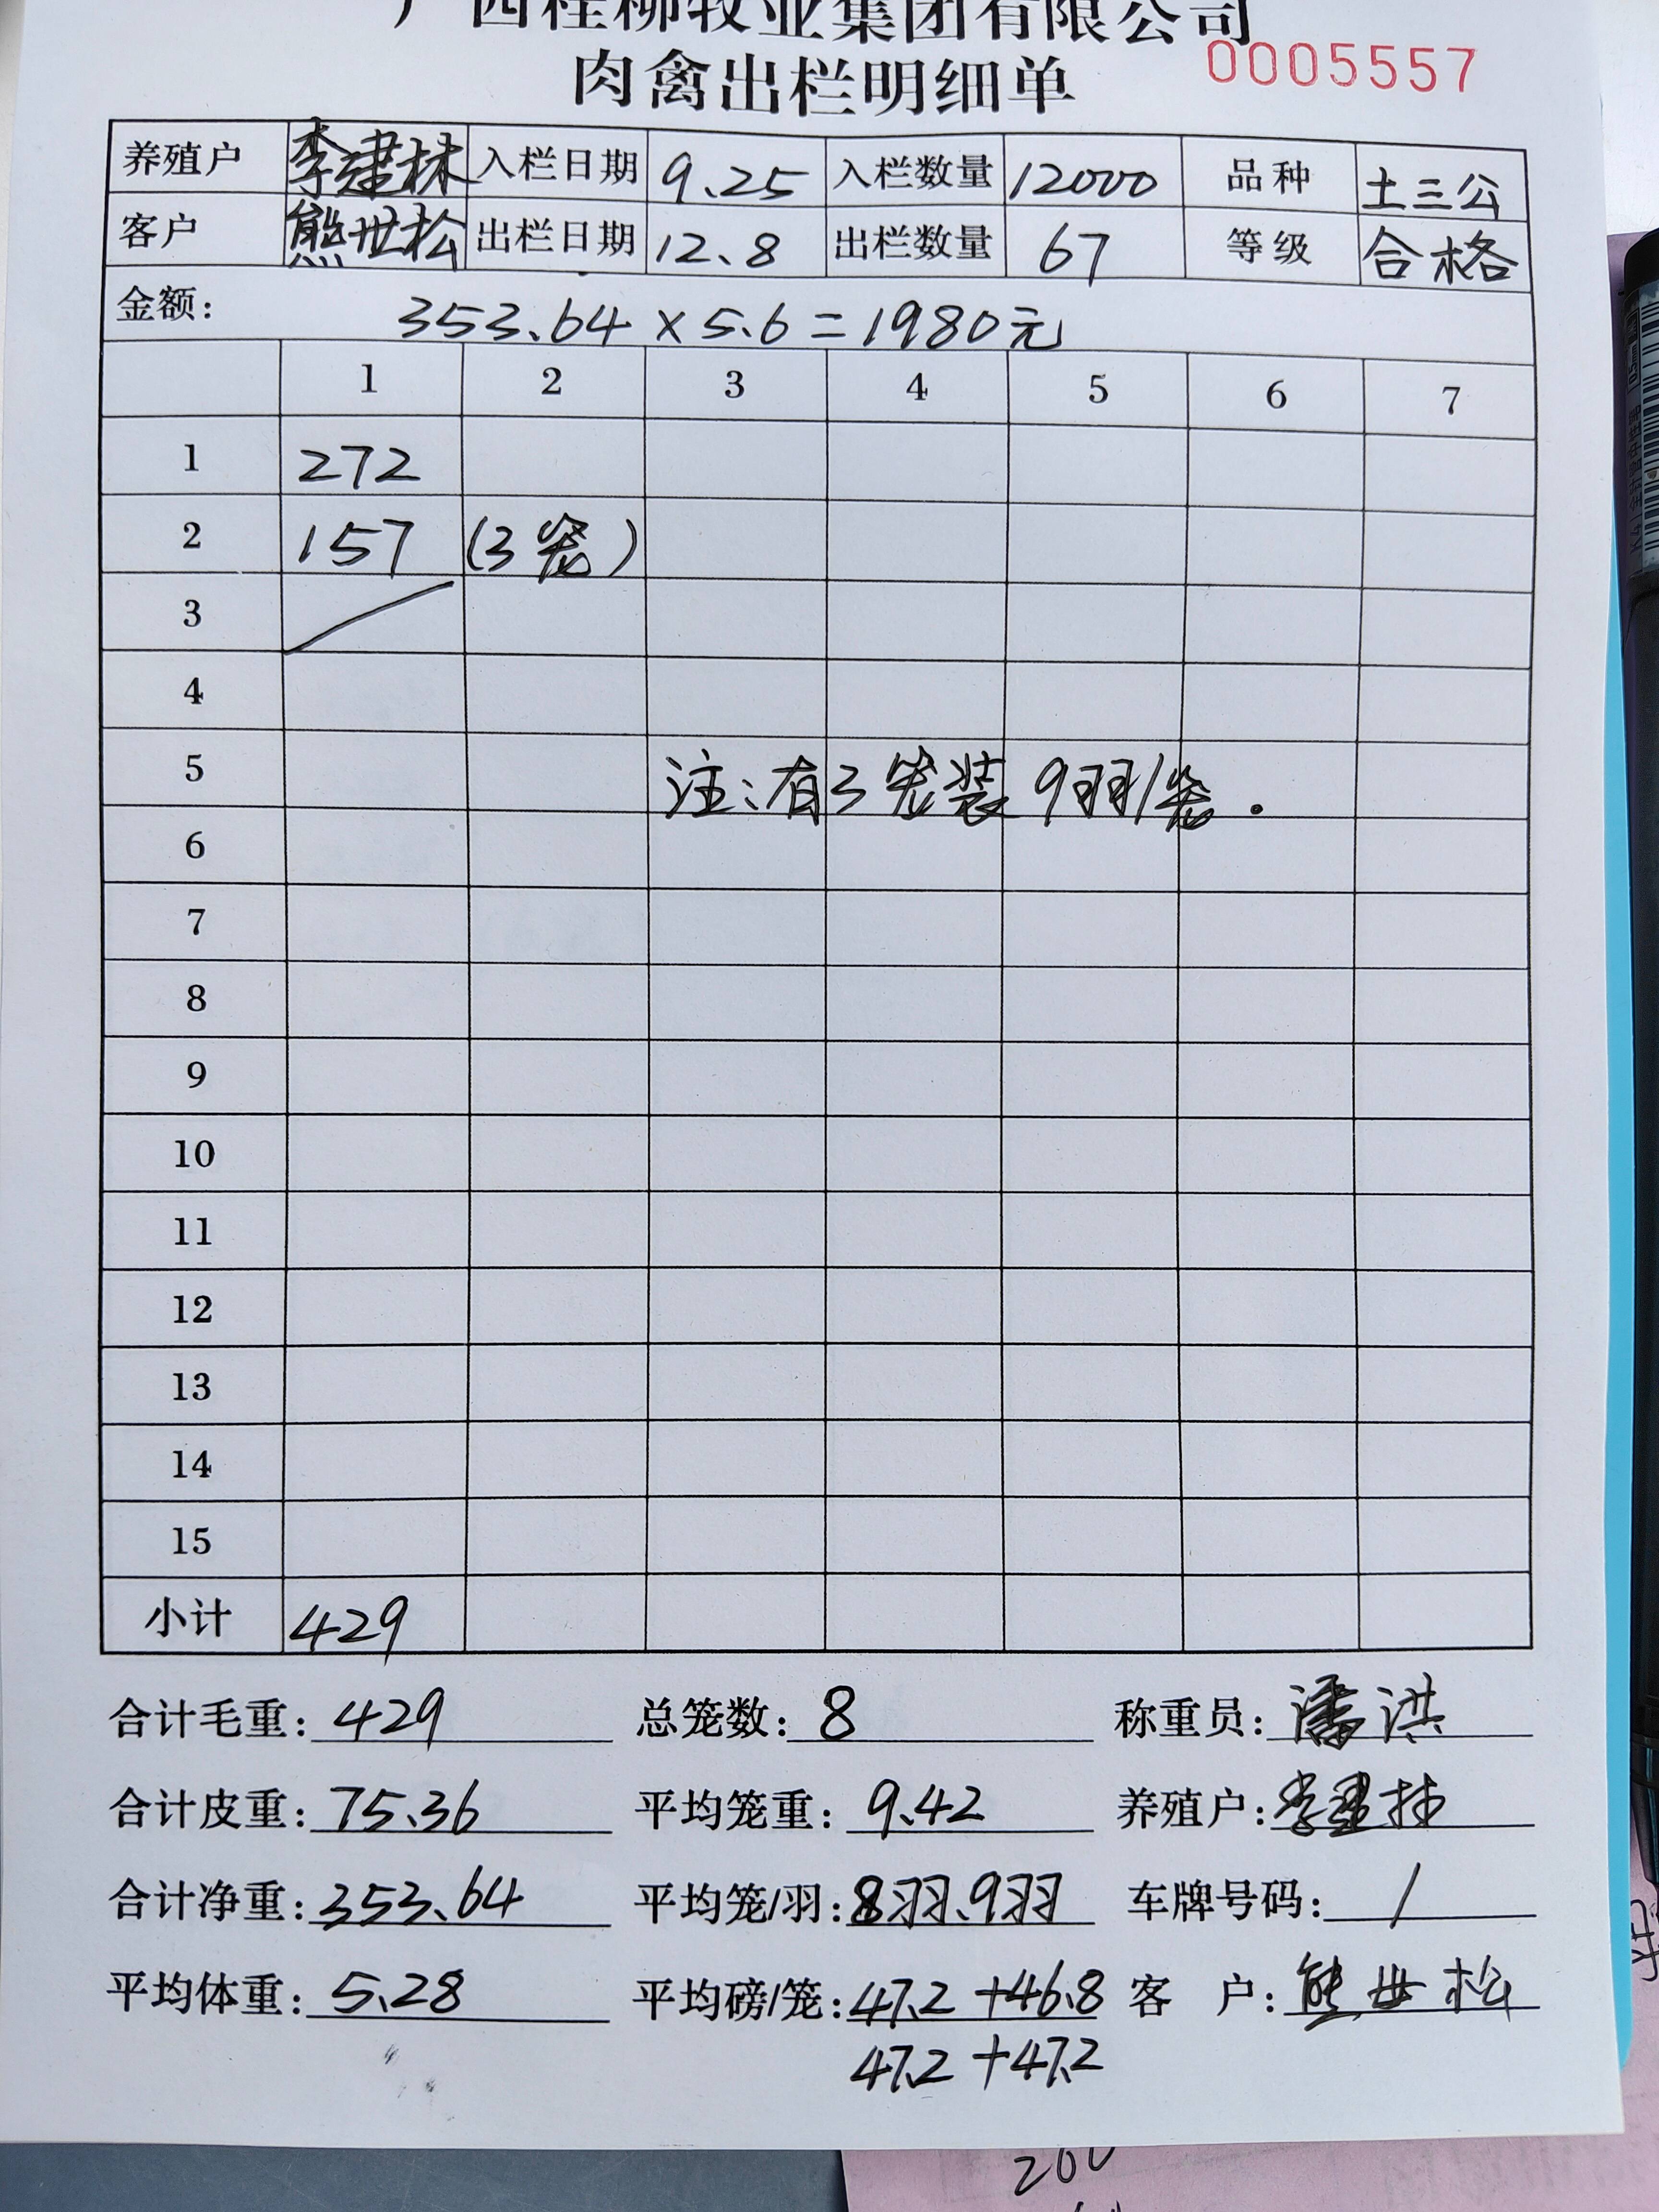 广西桂柳牧业集团有限公司
肉禽出栏明细单 0005557
养殖户 李建林 入栏日期 9.25 入栏数量 12000 品种 土三公
客户 熊世松 出栏日期 12.8 出栏数量 67 等级 合格
金额: 353.64×5.6=1980元
1 2 3 4 5 6 7
1 272
2 157 (3笼)
3
4
5 注:有3笼装9羽/笼.
6
7
8
9
10
11
12
13
14
15
小计 429
合计毛重: 429 总笼数: 8 称重员: 潘洪
合计皮重: 75.36 平均笼重: 9.42 养殖户: 李建林
合计净重: 353.64 平均笼/羽: 8羽、9羽 车牌号码: /
平均体重: 5.28 平均磅/笼: 47.2+46.8 客 户: 熊世松
47.2+47.2
200